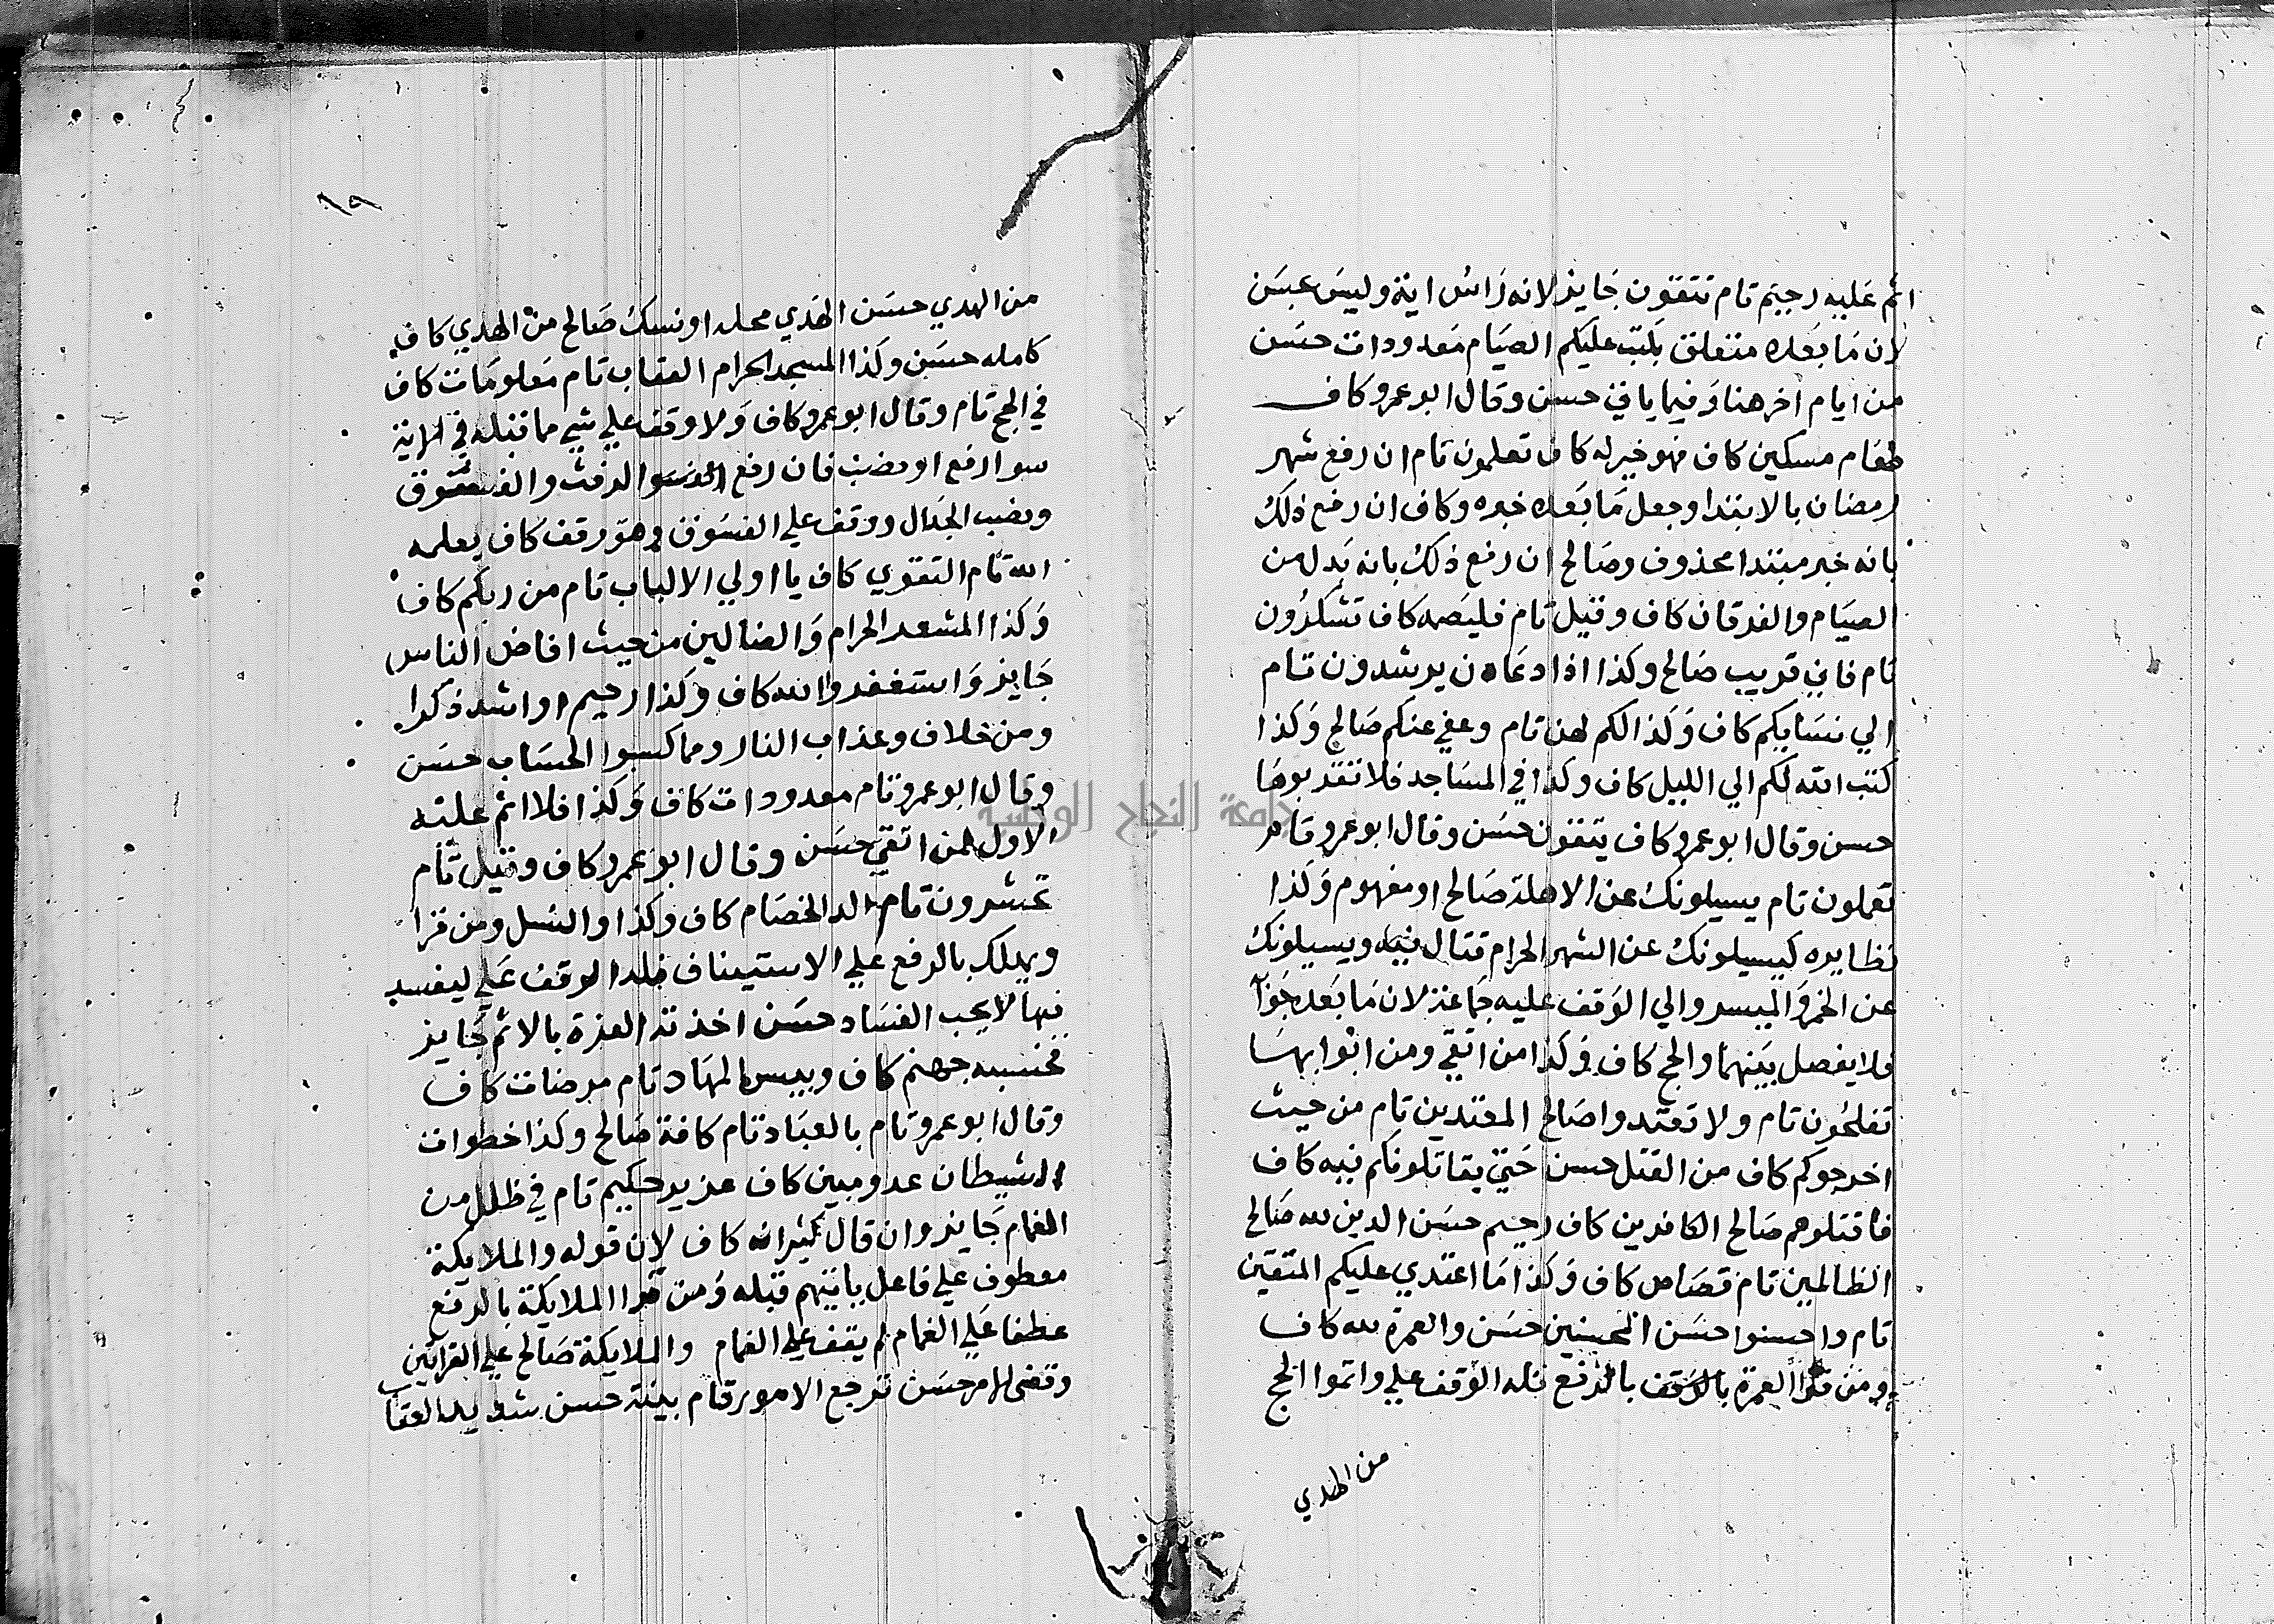 اثم عليه رحيم تام تتقون جايز لانه راس اية وليس عبسن
لان ما بعده متعلق بكتب عليكم الصيام معدودات حسن
من ايام اخر هنا وفيما ياتي حسن وقال ابو عمرو كاف
طعام مسكين كاف فهو خير له كاف تعلمون تام ان رفع شهر
رمضان بالابتدا وجعل ما بعده خبره وكاف ان رفع ذلك
بانه خبر مبتدا محذوف وصالح ان رفع ذلك بانه بدل من
الصيام والفرقان كاف وقيل تام فليصمه كاف تشكرون
تام فاني قريب صالح وكذا اذا دعان يرشدون تام
الي نسايكم كاف وكذا لكم لهن تام وعفي عنكم صالح وكذا
كتب الله لكم الي الليل كاف وكذا في المساجد فلا تقربوها
حسن وقال ابو عمرو كاف يتقون حسن وقال ابو عمرو تام
تعملون تام يسيلونك عن الاهلة صالح او مفهوم وكذا
نظايره كيسيلونك عن الشهر الحرام قتال فيه ويسيلونك
عن الخمر والميسر والي الوقف عليه جماعة لان ما بعده جوآ
فلا يفصل بينهما والحج كاف وكذا من اتقي ومن ابوابها
تفلحون تام ولا تعتدوا صالح المعتدين تام من حيث
اخرجوكم كاف من القتل حسن حتي يقاتلونكم فيه كاف
فاقتلوهم صالح الكافرين كاف رحيم حسن الدين لله صالح
الظالمين تام قصاص كاف وكذا ما اعتدي عليكم المتقين
تام واحسنوا حسن المحسنين حسن والعمرة لله كاف
ومن قرا العمرة بالوقف بالرفع فله الوقف علي واتموا الحج
من الهدي
١٩
من الهدي حسن الهدي محله او نسك صالح من الهدي كاف
كامله حسن وكذا المسجد الحرام العقاب تام معلومات كاف
في الحج تام وقال ابو عمرو كاف ولا وقف علي شي مما قبله في الاية
سوا رفع او نصب فان رفع الرفث والفسوق
ونصب الجدال ووقف علي الفسوق وهو وقف كاف يعلمه
الله تام التقوي كاف يا اولي الالباب تام من ربكم كاف
وكذا المشعر الحرام والضالين من حيث افاض الناس
جايز واستغفروا الله كاف وكذا رحيم او اشد ذكرا
ومن خلاف وعذاب النار ومما كسبوا الحساب حسن
وقال ابو عمرو تام معدودات كاف وكذا فلا اثم عليه
الاول لمن اتقي حسن وقال ابو عمرو كاف وقيل تام
تحشرون تام الد الخصام كاف وكذا والنسل ومن قرا
ويهلك بالرفع علي الاستيناف فله الوقف علي ليفسد
فيها لا يحب الفساد حسن اخذته العزة بالاثم جايز
فحسبه جهنم كاف وبيس المهاد تام مرضات كاف
وقال ابو عمرو تام بالعباد تام كافة صالح وكذا خطوات
الشيطان عدو مبين كاف عزيز حكيم تام في ظلل من
الغمام جايز وان قال كثير انه كاف لان قوله والملايكة
معطوف علي فاعل ياتيهم قبله ومن قرا الملايكة بالرفع
عطفا علي الغمام لم يقف علي الغمام والملايكة صالح علي القراتين
وقضي الامر حسن ترجع الامور تام بينة حسن شديد العقاب
جامعة النجاح الوطنية